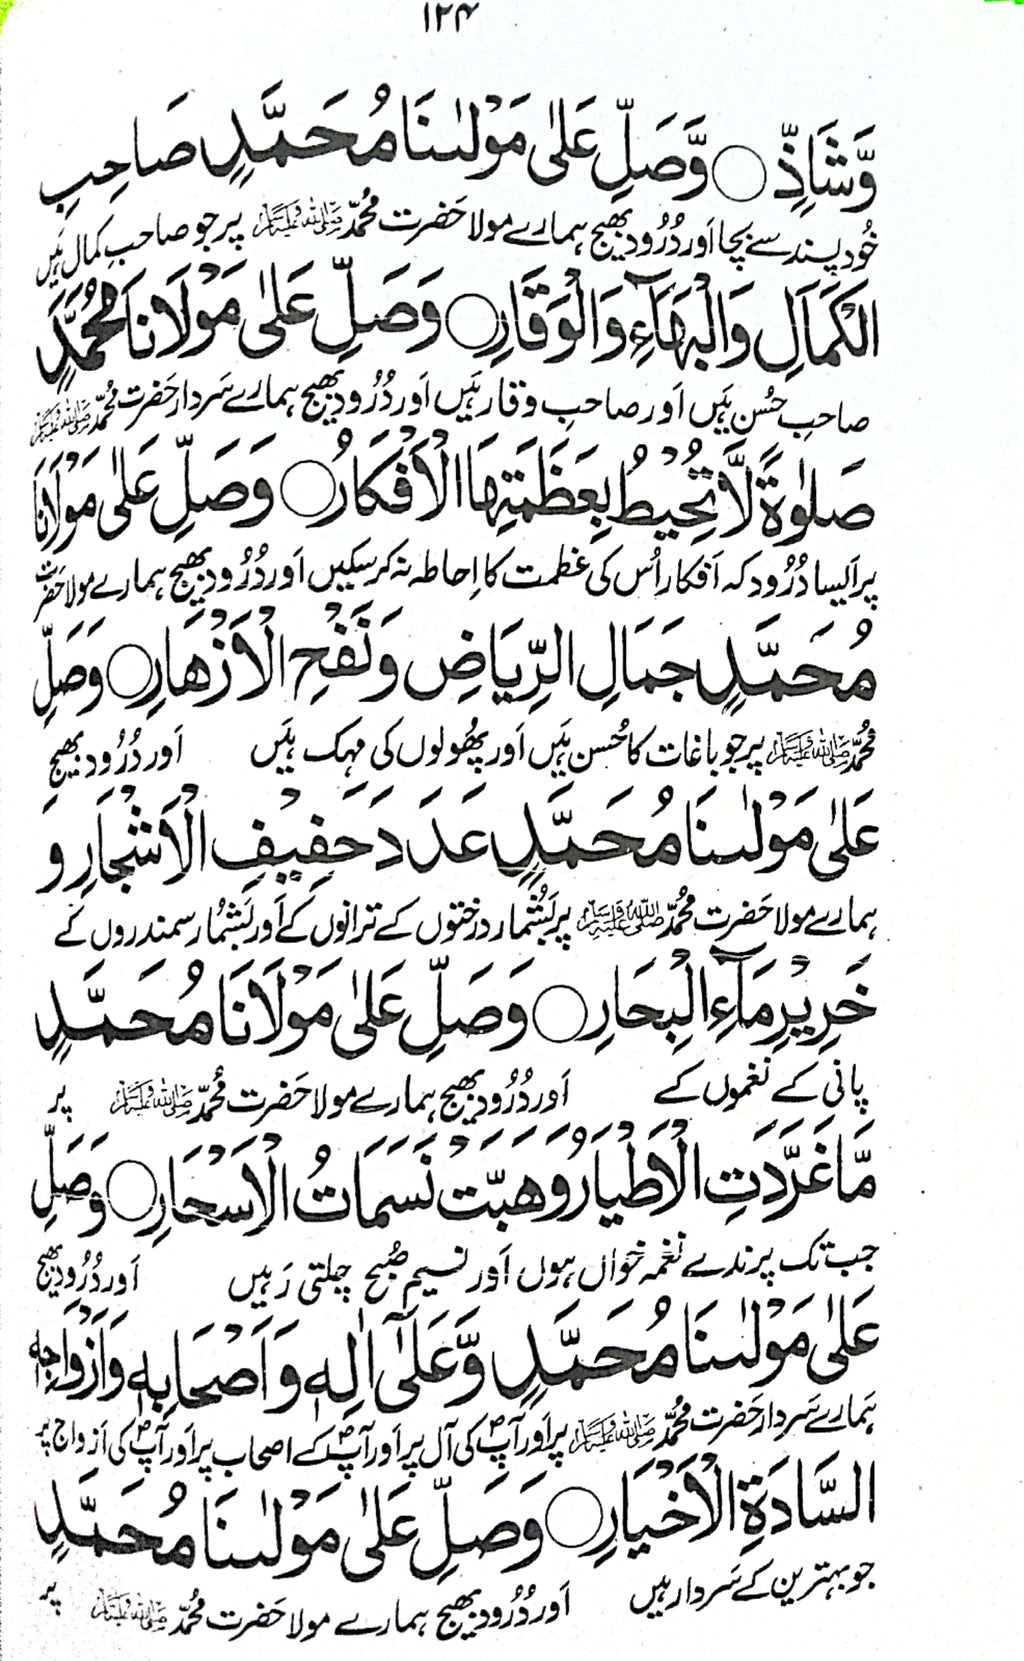 ۱۲۴
وَّشَاذِّ ○ وَّصَلِّ عَلٰى مَوْلٰىنَا مُحَمَّدٍ صَاحِبِ
خُود پسند سے بچا اَور دُرُود بھیج ہمارے مولا حَضرت مُحَمَّدؐ ﷺ پر جو صاحبِ کمال ہَیں
الْكَمَالِ وَالْبَهَآءِ وَالْوَقَارِ ○ وَصَلِّ عَلٰى مَوْلَانَا مُحَمَّدٍ
صاحبِ حُسن ہَیں اَور صاحبِ وقار ہَیں اَور دُرُود بھیج ہمارے سَردار حَضرت مُحَمَّد ﷺ
صَلٰوةً لَّا تُحِيْطُ بِعَظَمَتِهَا الْاَفْكَارُ ○ وَصَلِّ عَلٰى مَوْلَانَا
پر اَیسا دُرُود کہ اَفکار اُس کی عَظمت کا اِحاطہ نہ کر سکیں اَور دُرُود بھیج ہمارے مولا حَضرت
مُحَمَّدٍ جَمَالِ الرِّيَاضِ وَنَفْحِ الْاَزْهَارِ ○ وَصَلِّ
مُحَمَّد ﷺ پر جو باغات کا حُسن ہَیں اَور پُھولوں کی مہک ہَیں اَور دُرُود بھیج
عَلٰى مَوْلٰىنَا مُحَمَّدٍ عَدَدَ حَفِيْفِ الْاَشْجَارِ وَ
ہمارے مولا حَضرت مُحَمَّد ﷺ پر بَشُمار درختوں کے ترانوں کے اَور بَشُمار سمندروں کے
خَرِيْرِ مَآءِ الْبِحَارِ ○ وَصَلِّ عَلٰى مَوْلَانَا مُحَمَّدٍ
پانی کے نغموں کے اَور دُرُود بھیج ہمارے مولا حَضرت مُحَمَّد ﷺ پر
مَّا غَرَّدَتِ الْاَطْيَارُ وَهَبَّتْ نَسَمَاتُ الْاَسْحَارِ ○ وَصَلِّ
جب تک پرندے نغمہ خواں ہوں اَور نسیمِ صُبح چلتی رَہیں اَور دُرُود بھیج
عَلٰى مَوْلٰىنَا مُحَمَّدٍ وَّعَلٰٓى اٰلِهٖ وَاَصْحَابِهٖ وَاَزْوَاجِهِ
ہمارے سَردار حَضرت مُحَمَّد ﷺ پر اَور آپؐ کی آل پر اَور آپؐ کے اصحاب پر اَور آپؐ کی اَزواج پر
السَّادَةِ الْاَخْيَارِ ○ وَصَلِّ عَلٰى مَوْلٰىنَا مُحَمَّدٍ
جو بہترین کے سَردار ہیں اَور دُرُود بھیج ہمارے مولا حَضرت مُحَمَّد ﷺ پر